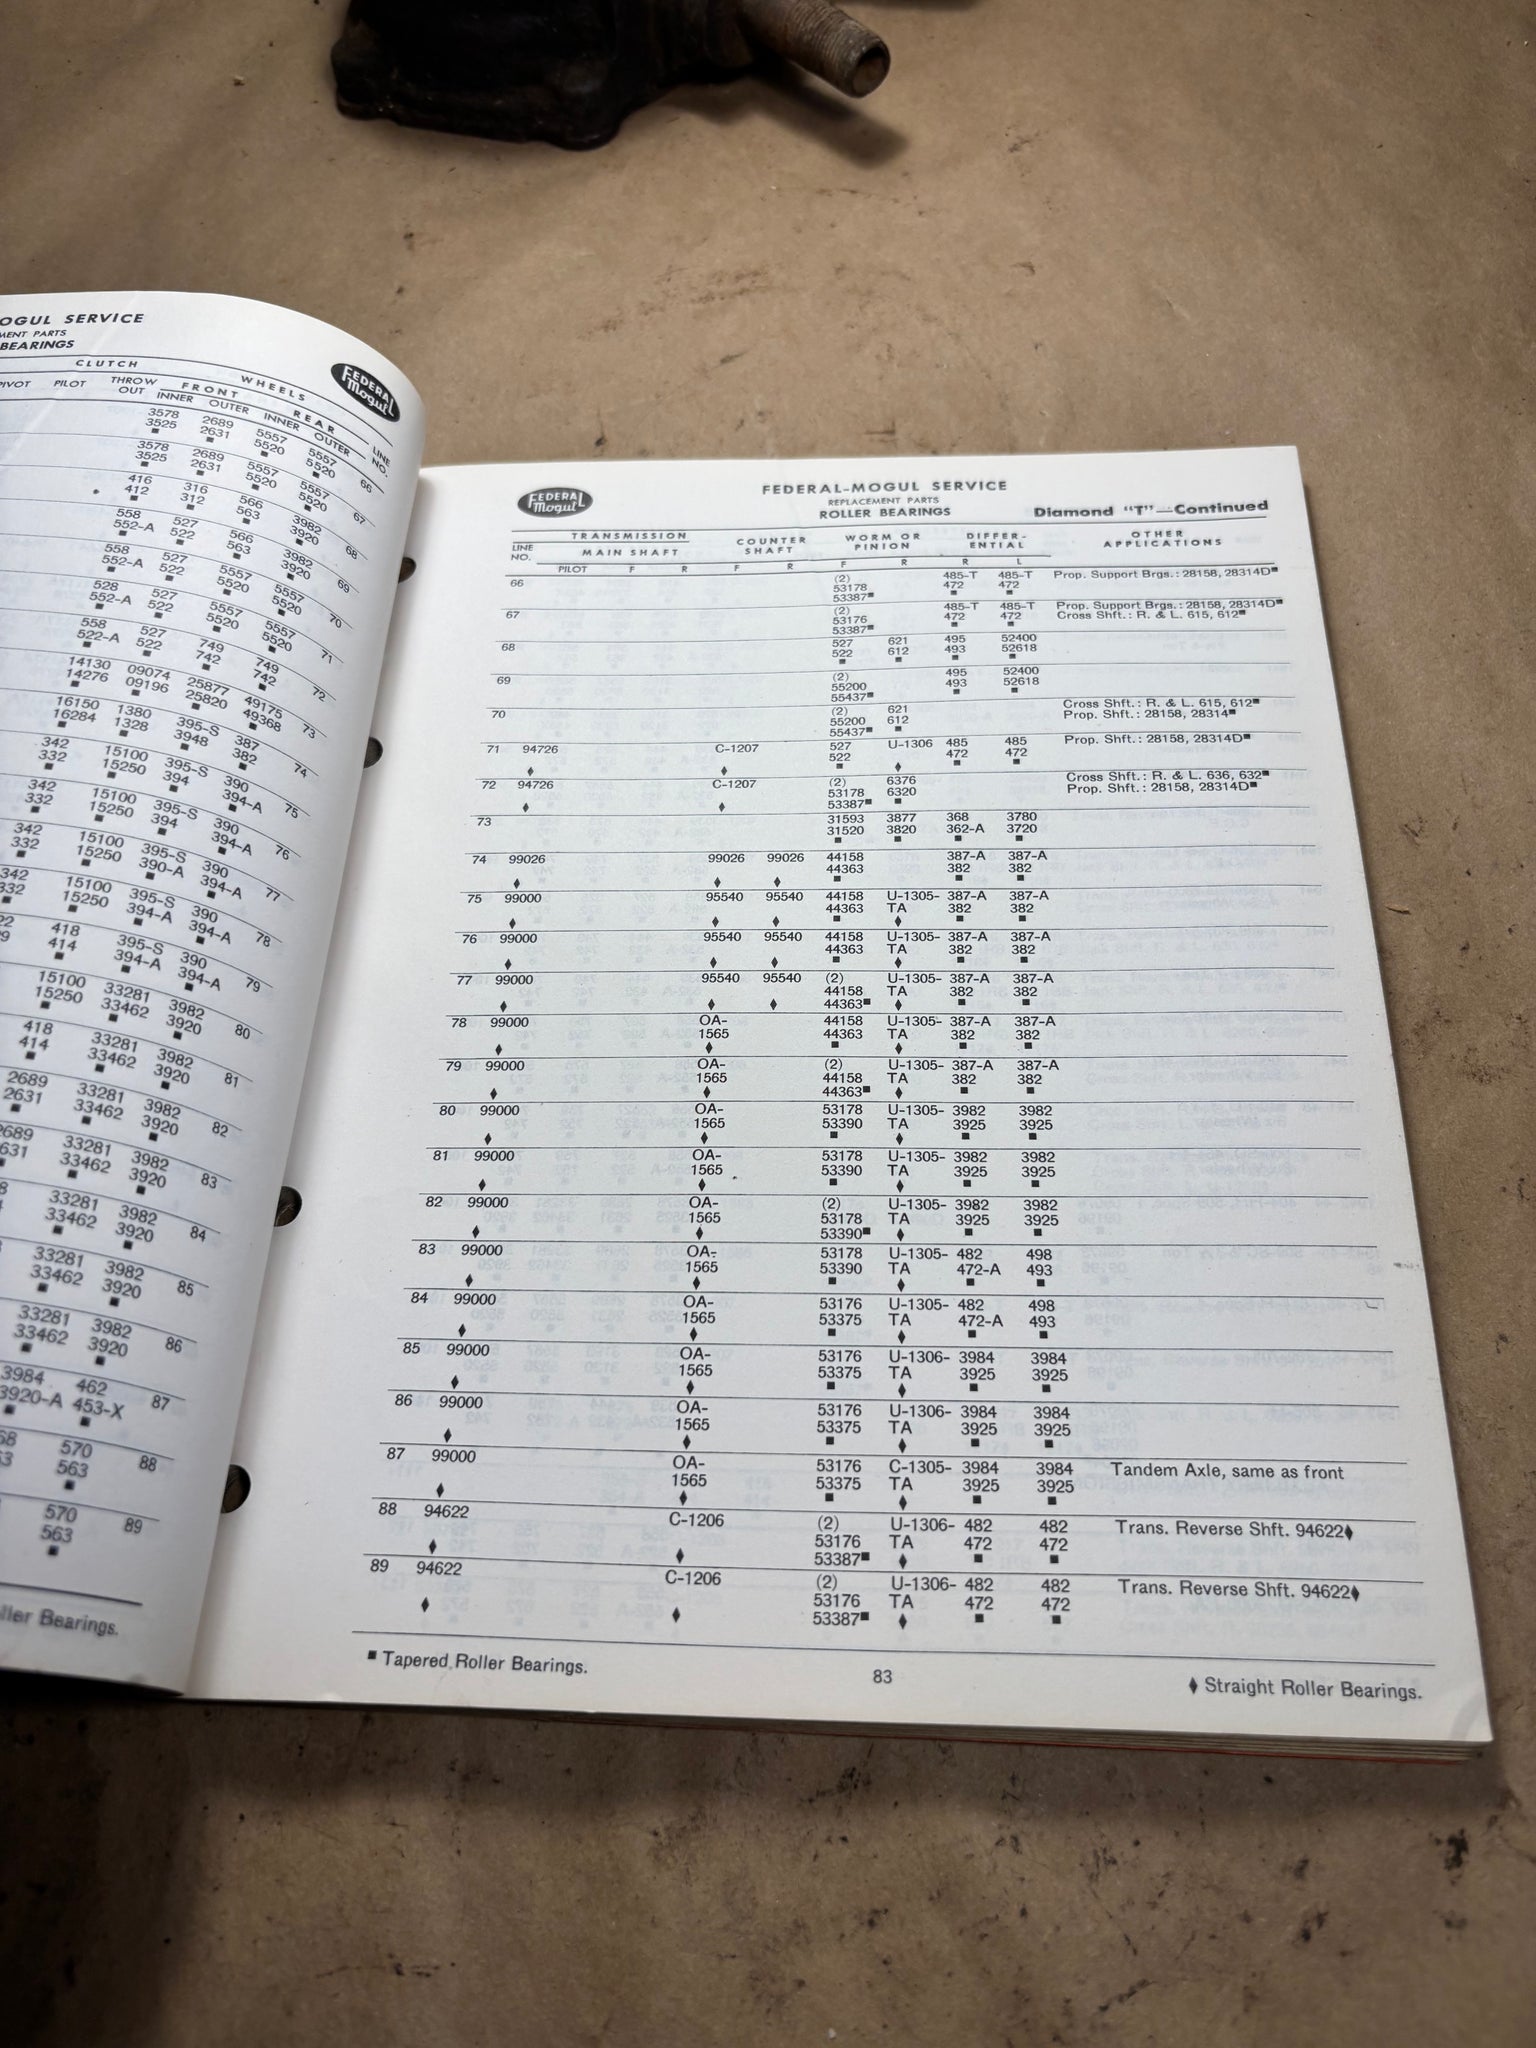 OGUL SERVICE
MENT PARTS
BEARINGS
FEDERAL Mogul
CLUTCH WHEELS
PIVOT PILOT THROW OUT FRONT REAR LINE NO.
INNER OUTER INNER OUTER
3578 2689 5557 5557 66
3525■ 2631■ 5520■ 5520■
3578 2689 5557 5557 67
3525■ 2631■ 5520■ 5520■
416 316 566 3982 68
412■ 312■ 563■ 3920■
558 527 566 3982 69
552-A■ 522■ 563■ 3920■
558 527 5557 5557 70
552-A■ 522■ 5520■ 5520■
528 527 5557 5557 71
552-A■ 522■ 5520■ 5520■
558 527 749 749 72
522-A■ 522■ 742■ 742■
14130 09074 25877 49175 73
14276■ 09196■ 25820■ 49368■
16150 1380 395-S 387 74
16284■ 1328■ 3948■ 382■
342 15100 395-S 390 75
332■ 15250■ 394■ 394-A■
342 15100 395-S 390 76
332■ 15250■ 394■ 394-A■
342 15100 395-S 390 77
332■ 15250■ 390-A■ 394-A■
342 15100 395-S 390 78
332■ 15250■ 394-A■ 394-A■
418 395-S 390 79
414■ 394-A■ 394-A■
15100 33281 3982 80
15250■ 33462■ 3920■
418 33281 3982 81
414■ 33462■ 3920■
2689 33281 3982 82
2631■ 33462■ 3920■
2689 33281 3982 83
2631■ 33462■ 3920■
33281 3982 84
33462■ 3920■
33281 3982 85
33462■ 3920■
33281 3982 86
33462■ 3920■
3984 462 87
3920-A■ 453-X■
570 88
563■
570 89
563■
ller Bearings.
FEDERAL Mogul
FEDERAL-MOGUL SERVICE
REPLACEMENT PARTS
ROLLER BEARINGS
Diamond "T"—Continued
LINE NO. TRANSMISSION COUNTER SHAFT WORM OR PINION DIFFER-ENTIAL OTHER APPLICATIONS
MAIN SHAFT
PILOT F R F R F R R L
66 (2) 485-T 485-T Prop. Support Brgs.: 28158, 28314D■
53178 472 472
53387■ ■ ■
67 (2) 485-T 485-T Prop. Support Brgs.: 28158, 28314D■
53176 472 472 Cross Shft.: R. & L. 615, 612■
53387■ ■ ■
68 527 621 495 52400
522 612 493 52618
■ ■ ■ ■
69 (2) 495 52400
55200 493 52618
55437■ ■ ■
70 (2) 621 Cross Shft.: R. & L. 615, 612■
55200 612 Prop. Shft.: 28158, 28314■
55437■ ■
71 94726 C-1207 527 U-1306 485 485 Prop. Shft.: 28158, 28314D■
522 472 472
♦ ♦ ■ ♦ ■ ■
72 94726 C-1207 (2) 6376 Cross Shft.: R. & L. 636, 632■
53178 6320 Prop. Shft.: 28158, 28314D■
♦ ♦ 53387■ ■
73 31593 3877 368 3780
31520 3820 362-A 3720
■ ■ ■ ■
74 99026 99026 99026 44158 387-A 387-A
44363 382 382
♦ ♦ ♦ ■ ■ ■
75 99000 95540 95540 44158 U-1305- 387-A 387-A
44363 TA 382 382
♦ ♦ ♦ ■ ♦ ■ ■
76 99000 95540 95540 44158 U-1305- 387-A 387-A
44363 TA 382 382
♦ ♦ ♦ ■ ♦ ■ ■
77 99000 95540 95540 (2) U-1305- 387-A 387-A
44158 TA 382 382
♦ ♦ ♦ 44363■ ♦ ■ ■
78 99000 OA- 44158 U-1305- 387-A 387-A
1565 44363 TA 382 382
♦ ♦ ■ ♦ ■ ■
79 99000 OA- (2) U-1305- 387-A 387-A
1565 44158 TA 382 382
♦ ♦ 44363■ ♦ ■ ■
80 99000 OA- 53178 U-1305- 3982 3982
1565 53390 TA 3925 3925
♦ ♦ ■ ♦ ■ ■
81 99000 OA- 53178 U-1305- 3982 3982
1565 53390 TA 3925 3925
♦ ♦ ■ ♦ ■ ■
82 99000 OA- (2) U-1305- 3982 3982
1565 53178 TA 3925 3925
♦ ♦ 53390■ ♦ ■ ■
83 99000 OA- 53178 U-1305- 482 498
1565 53390 TA 472-A 493
♦ ♦ ■ ♦ ■ ■
84 99000 OA- 53176 U-1305- 482 498
1565 53375 TA 472-A 493
♦ ♦ ■ ♦ ■ ■
85 99000 OA- 53176 U-1306- 3984 3984
1565 53375 TA 3925 3925
♦ ♦ ■ ♦ ■ ■
86 99000 OA- 53176 U-1306- 3984 3984
1565 53375 TA 3925 3925
♦ ♦ ■ ♦ ■ ■
87 99000 OA- 53176 C-1305- 3984 3984 Tandem Axle, same as front
1565 53375 TA 3925 3925
♦ ♦ ■ ♦ ■ ■
88 94622 C-1206 (2) U-1306- 482 482 Trans. Reverse Shft. 94622♦
53176 TA 472 472
♦ ♦ 53387■ ♦ ■ ■
89 94622 C-1206 (2) U-1306- 482 482 Trans. Reverse Shft. 94622♦
53176 TA 472 472
♦ ♦ 53387■ ♦ ■ ■
■ Tapered Roller Bearings.
83
♦ Straight Roller Bearings.